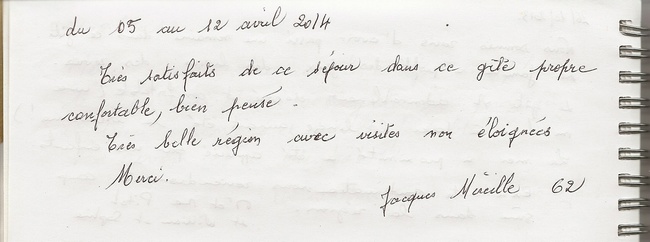 du 05 au 12 avril 2014
Très satisfaits de ce séjour dans ce gîte propre
confortable, bien pensé.
Très belle région avec visites non éloignées
Merci.
Jacques Mireille 62